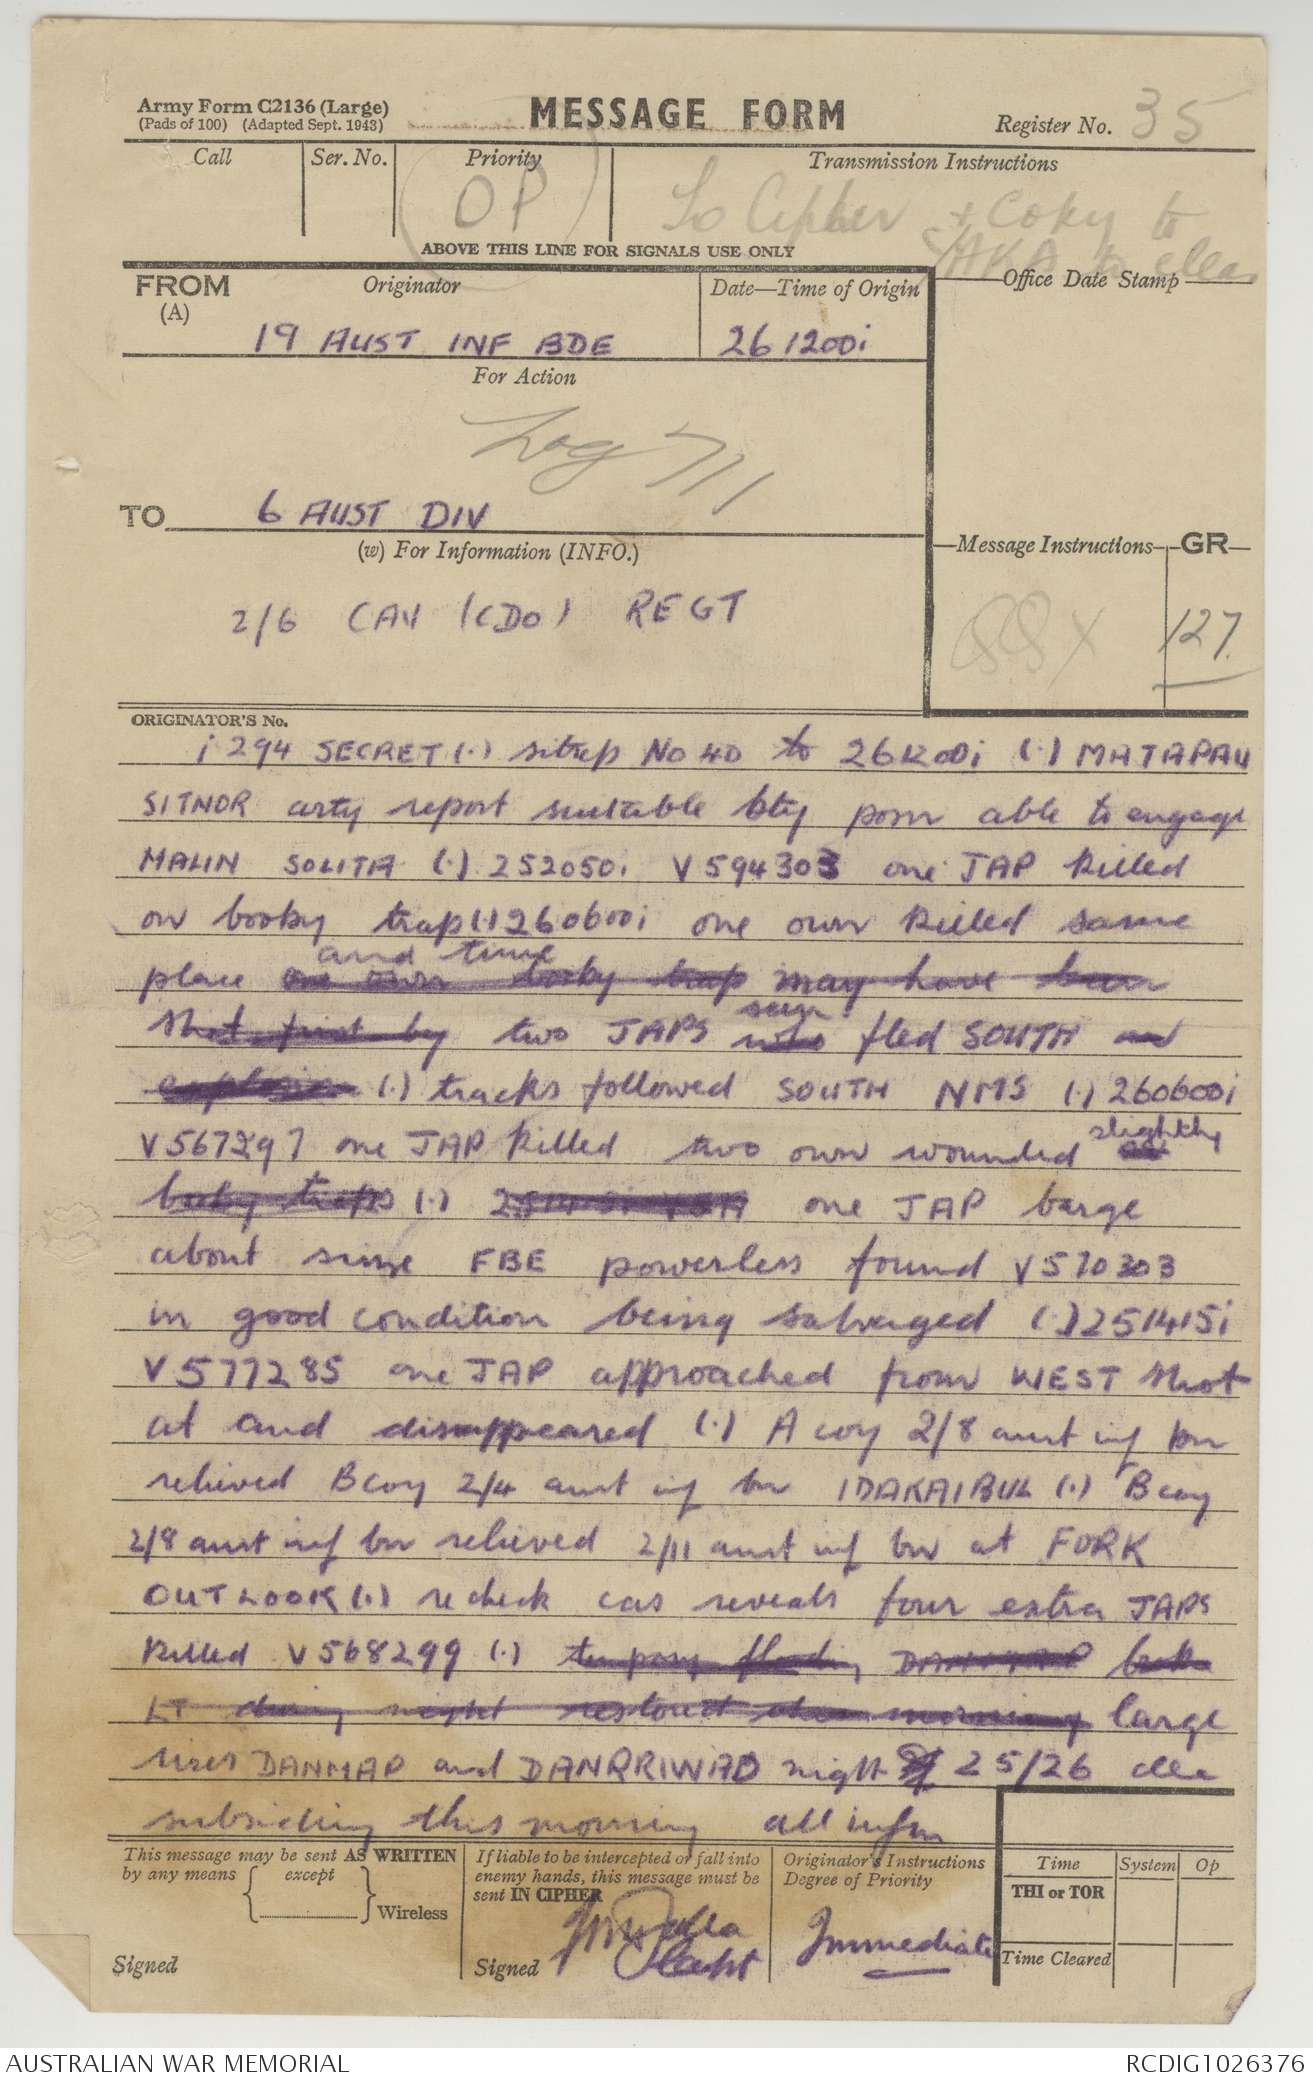 Army Form C2136 (Large)
(Pads of 100) (Adapted Sept. 1943)
MESSAGE FORM
Register No. 35
Call
Ser. No.
Priority
Transmission Instructions
OP
To Cipher + Copy to
AKA to clear
ABOVE THIS LINE FOR SIGNALS USE ONLY
FROM
(A)
Originator
Date—Time of Origin
Office Date Stamp
19 AUST INF BDE
261200i
For Action
Log 711
TO 6 AUST DIV
(w) For Information (INFO.)
Message Instructions
GR
2/6 CAV (CDO) REGT
127
ORIGINATOR'S No.
i 294 SECRET (.) sitrep No 40 to 261200i (.) MATAPAU
SITNOR arty report suitable bty posn able to engage
MALIN SOLITA (.) 252050i V594303 one JAP killed
on booby trap (.) 260600i one own killed same
and time
place one own booby trap may have been
seen
shot first by two JAPS who fled SOUTH and
explosion (.) tracks followed SOUTH NMS (.) 260600i
slightly
V567297 one JAP killed two own wounded
booby traps (.) one JAP barge
about size FBE powerless found V570303
in good condition being salvaged (.) 251415i
V577285 one JAP approached from WEST shot
at and disappeared (.) A coy 2/8 aust inf bn
relieved B coy 2/4 aust inf bn IDAKAIBUL (.) B coy
2/8 aust inf bn relieved 2/11 aust inf bn at FORK
OUTLOOK (.) recheck cas reveals four extra JAPS
killed V568299 (.) DANMAP
LT during night restored morning large
rises DANMAP and DANRRIWAD night 25/26
subsiding this morning all infm
This message may be sent AS WRITTEN
by any means except
Wireless
Signed
If liable to be intercepted or fall into
enemy hands, this message must be
sent IN CIPHER
Signed
Capt
Originator's Instructions
Degree of Priority
Immediate
Time
System
Op
THI or TOR
Time Cleared
AUSTRALIAN WAR MEMORIAL
RCDIG1026376